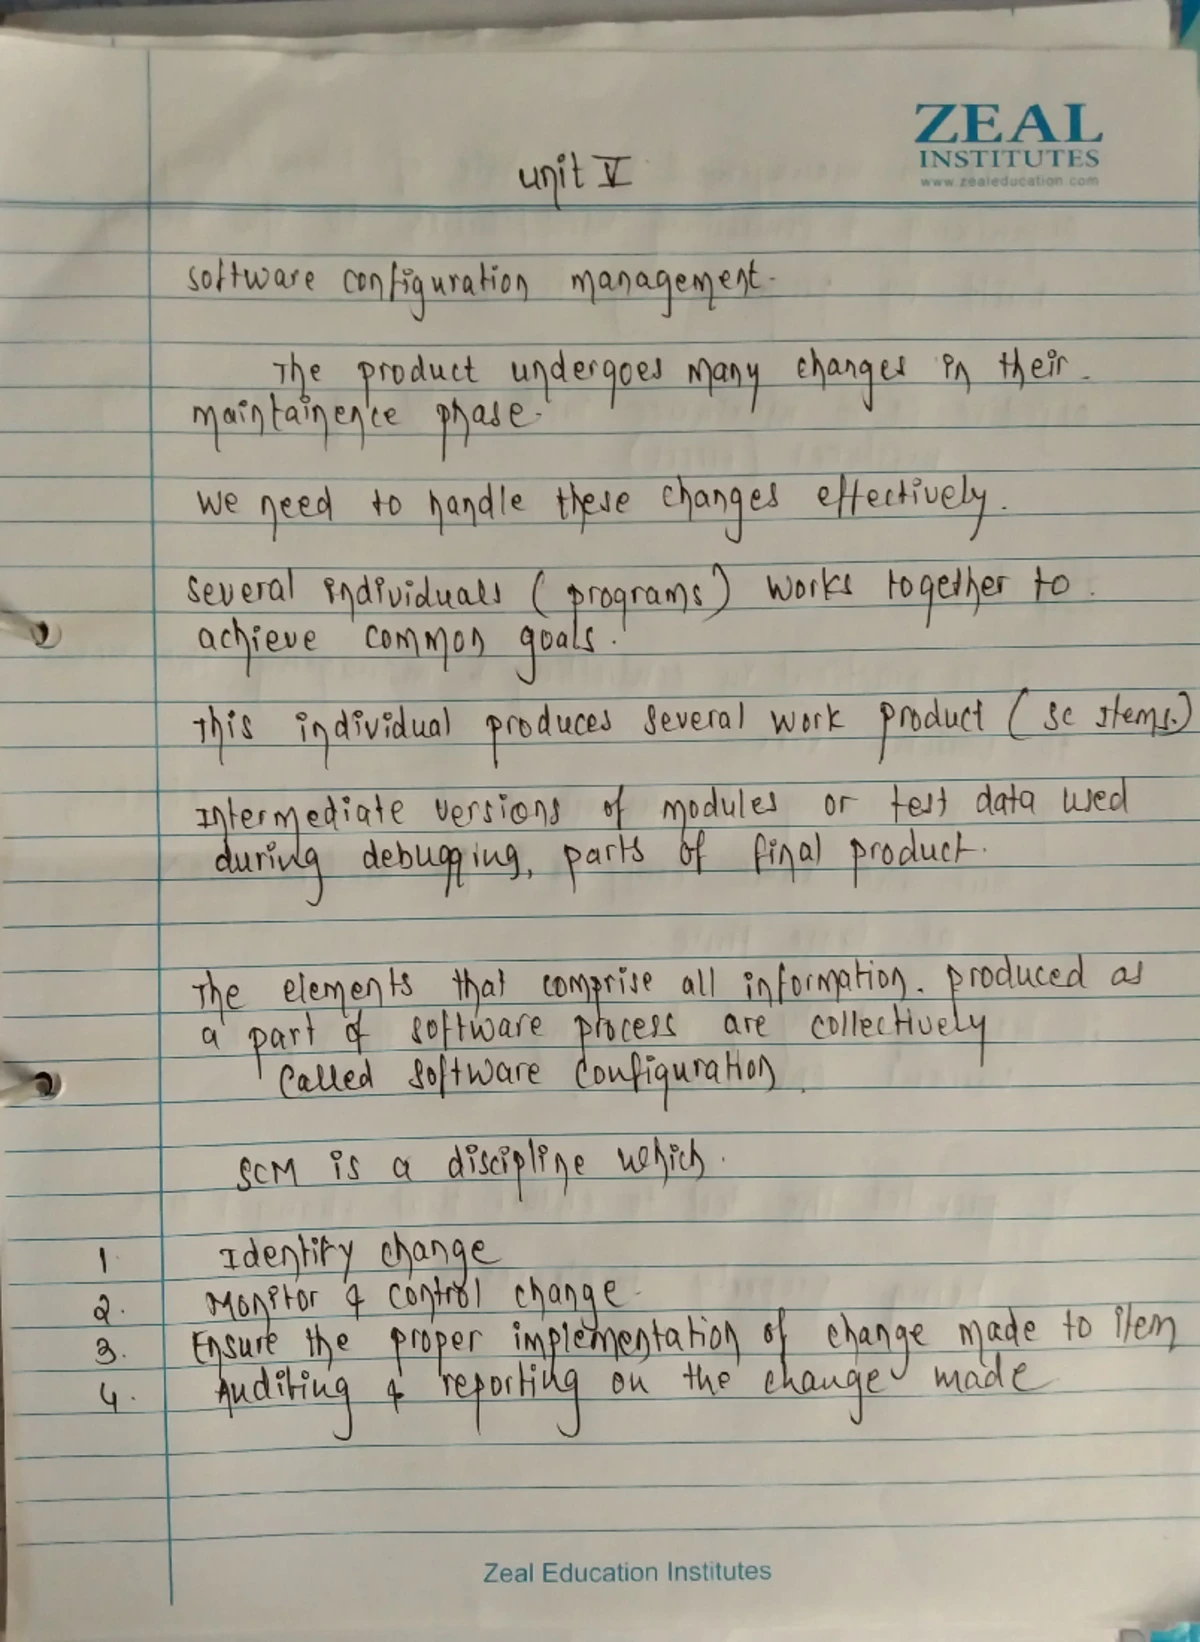 ZEAL
INSTITUTES
www.zealeducation.com
unit V
software configuration management.
The product undergoes many changes in their
maintainence phase.
We need to handle these changes effectively.
Several individuals (programs) works together to
achieve common goals.
This individual produces several work product (sc Items.)
Intermediate versions of modules or test data used
during debugging, parts of final product.
The elements that comprise all information. produced as
a part of software process are collectively
called software configuration.
SCM is a discipline which.
1. Identify change
2. Monitor & control change.
3. Ensure the proper implementation of change made to item
4. Auditing & reporting on the change made
Zeal Education Institutes